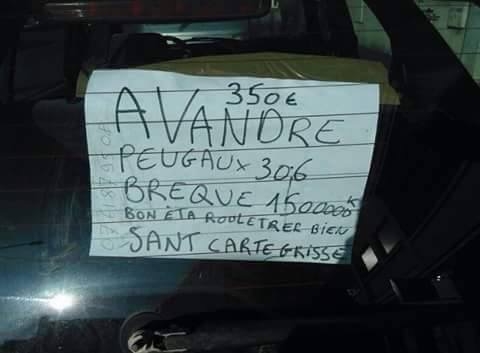 350€
AVANDRE
PEUGAUX 306
BREQUE 150000K
BON ÉTA ROULETRER BIEN
SANT CARTE GRISSE